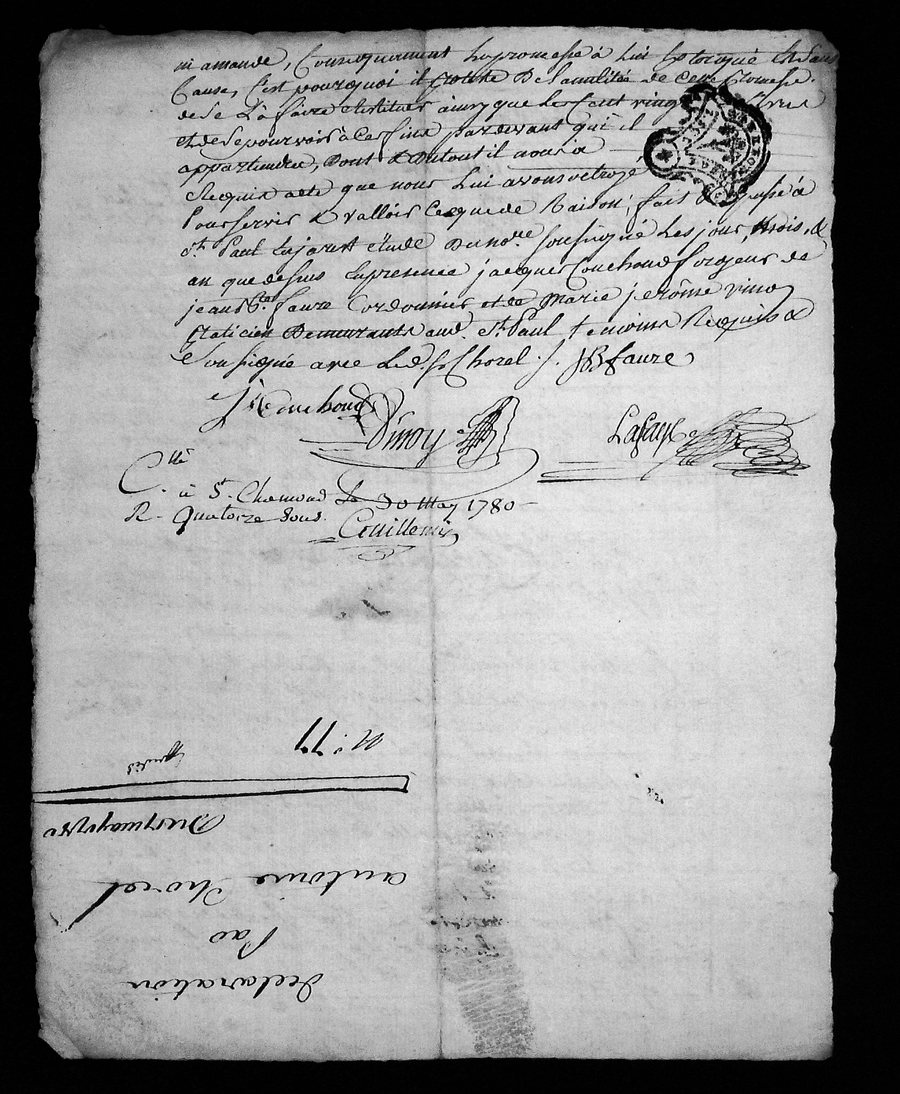 ni amande, Consequemment la promesse à Lui Extorqué Est Sans
Cause, C'est pourquoi il proteste De la nullité de Cette promesse
de Se La faire restituer ainsy que Les Cent vingt Livres
et de Se pourvoir à Ces fins pardevant qui il
appartiendra, Dont & Du tout il nous a
Requis acte que nous Lui avons octroyé
Pour Servir & valloir Ce que de Raison, fait & passé à
St. Paul En jarest étude Du no.re Soussigné Les jour, Mois, &
an que dessus En presence jacques Couchoud forgeur de
jean Bte. faure Cordonnier et de Marie jerôme vinoy
Praticien Demeurants aud. St. Paul temoins Requis &
Soussigné avec Led. Sr. Chorel. /. JB faure
J Couchoud
Vinoy
C.llé
C. à St. Chamond Le 30 May 1780
R. Quatorze Sous
N.° 77
Declaration
Par
antoine Chorel